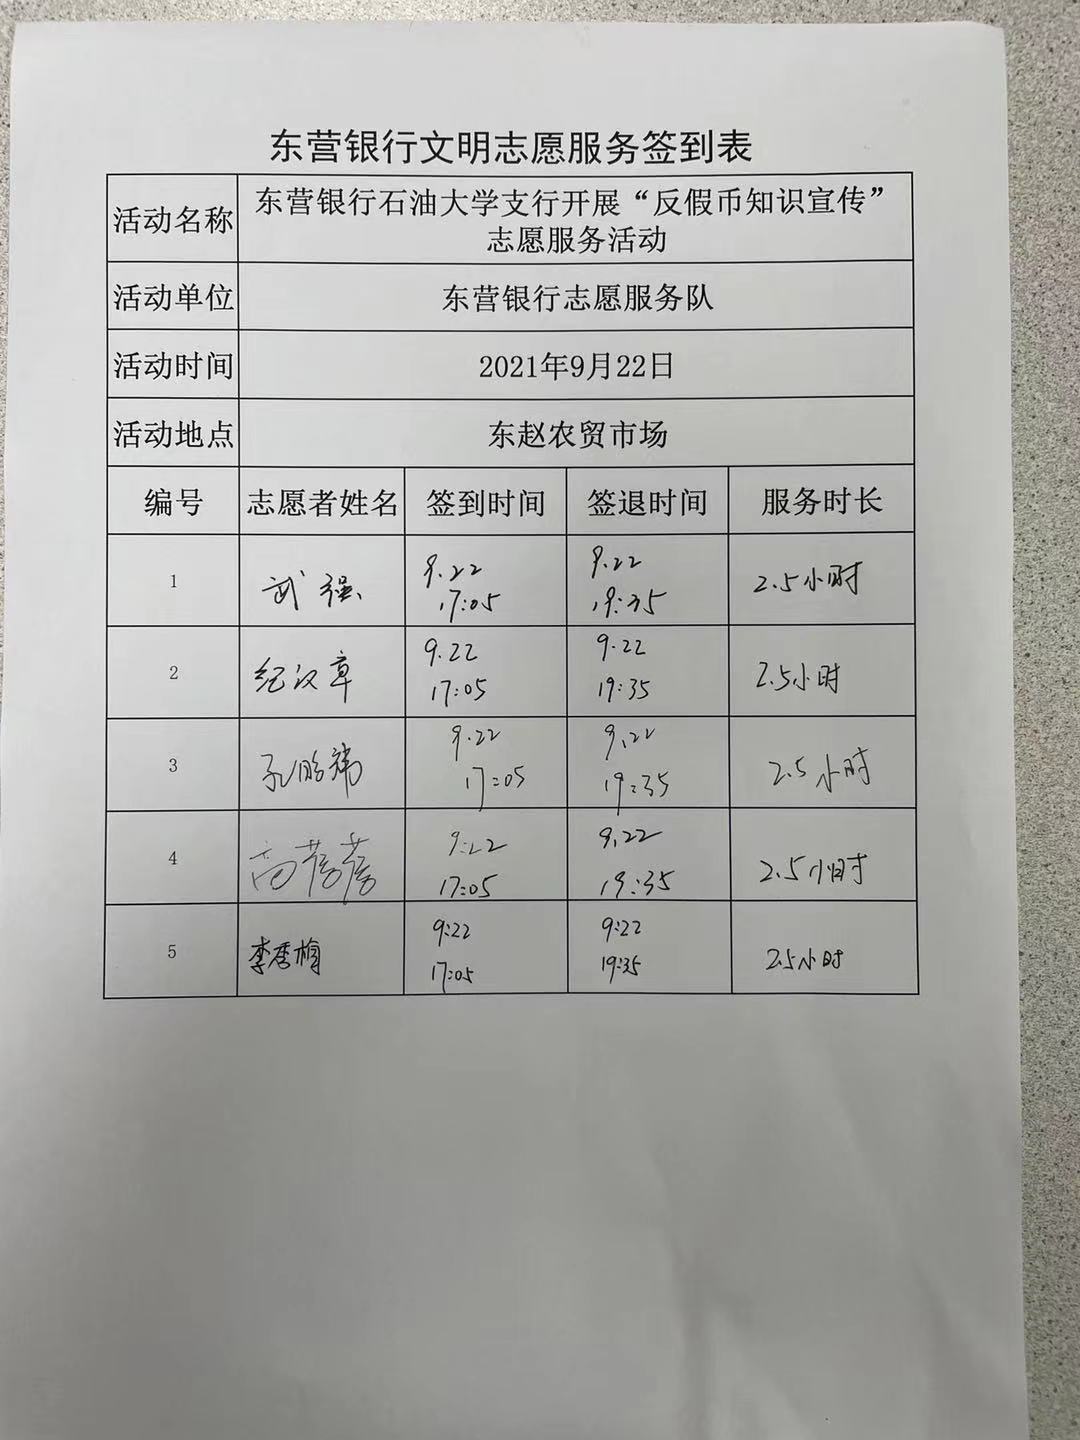 东营银行文明志愿服务签到表
活动名称
东营银行石油大学支行开展“反假币知识宣传”
志愿服务活动
活动单位
东营银行志愿服务队
活动时间
2021年9月22日
活动地点
东赵农贸市场
编号 志愿者姓名 签到时间 签退时间 服务时长
1 武强 9.22 9.22 2.5小时
17:05 19:35
2 纪汉章 9.22 9.22 2.5小时
17:05 19:35
3 9.22 9.22 2.5小时
17:05 19:35
4 高蓓蓓 9:22 9.22 2.5小时
17:05 19:35
5 9:22 9:22 2.5小时
17:05 19:35